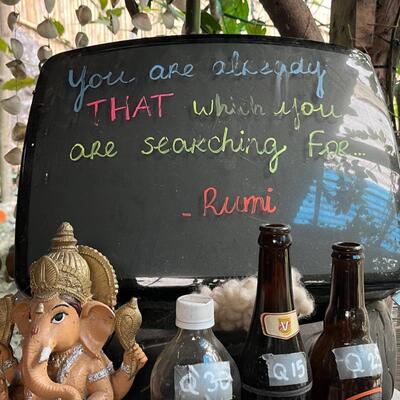 You are already
THAT which you
are searching For...
- Rumi
Q 30
Q 15
Q 25